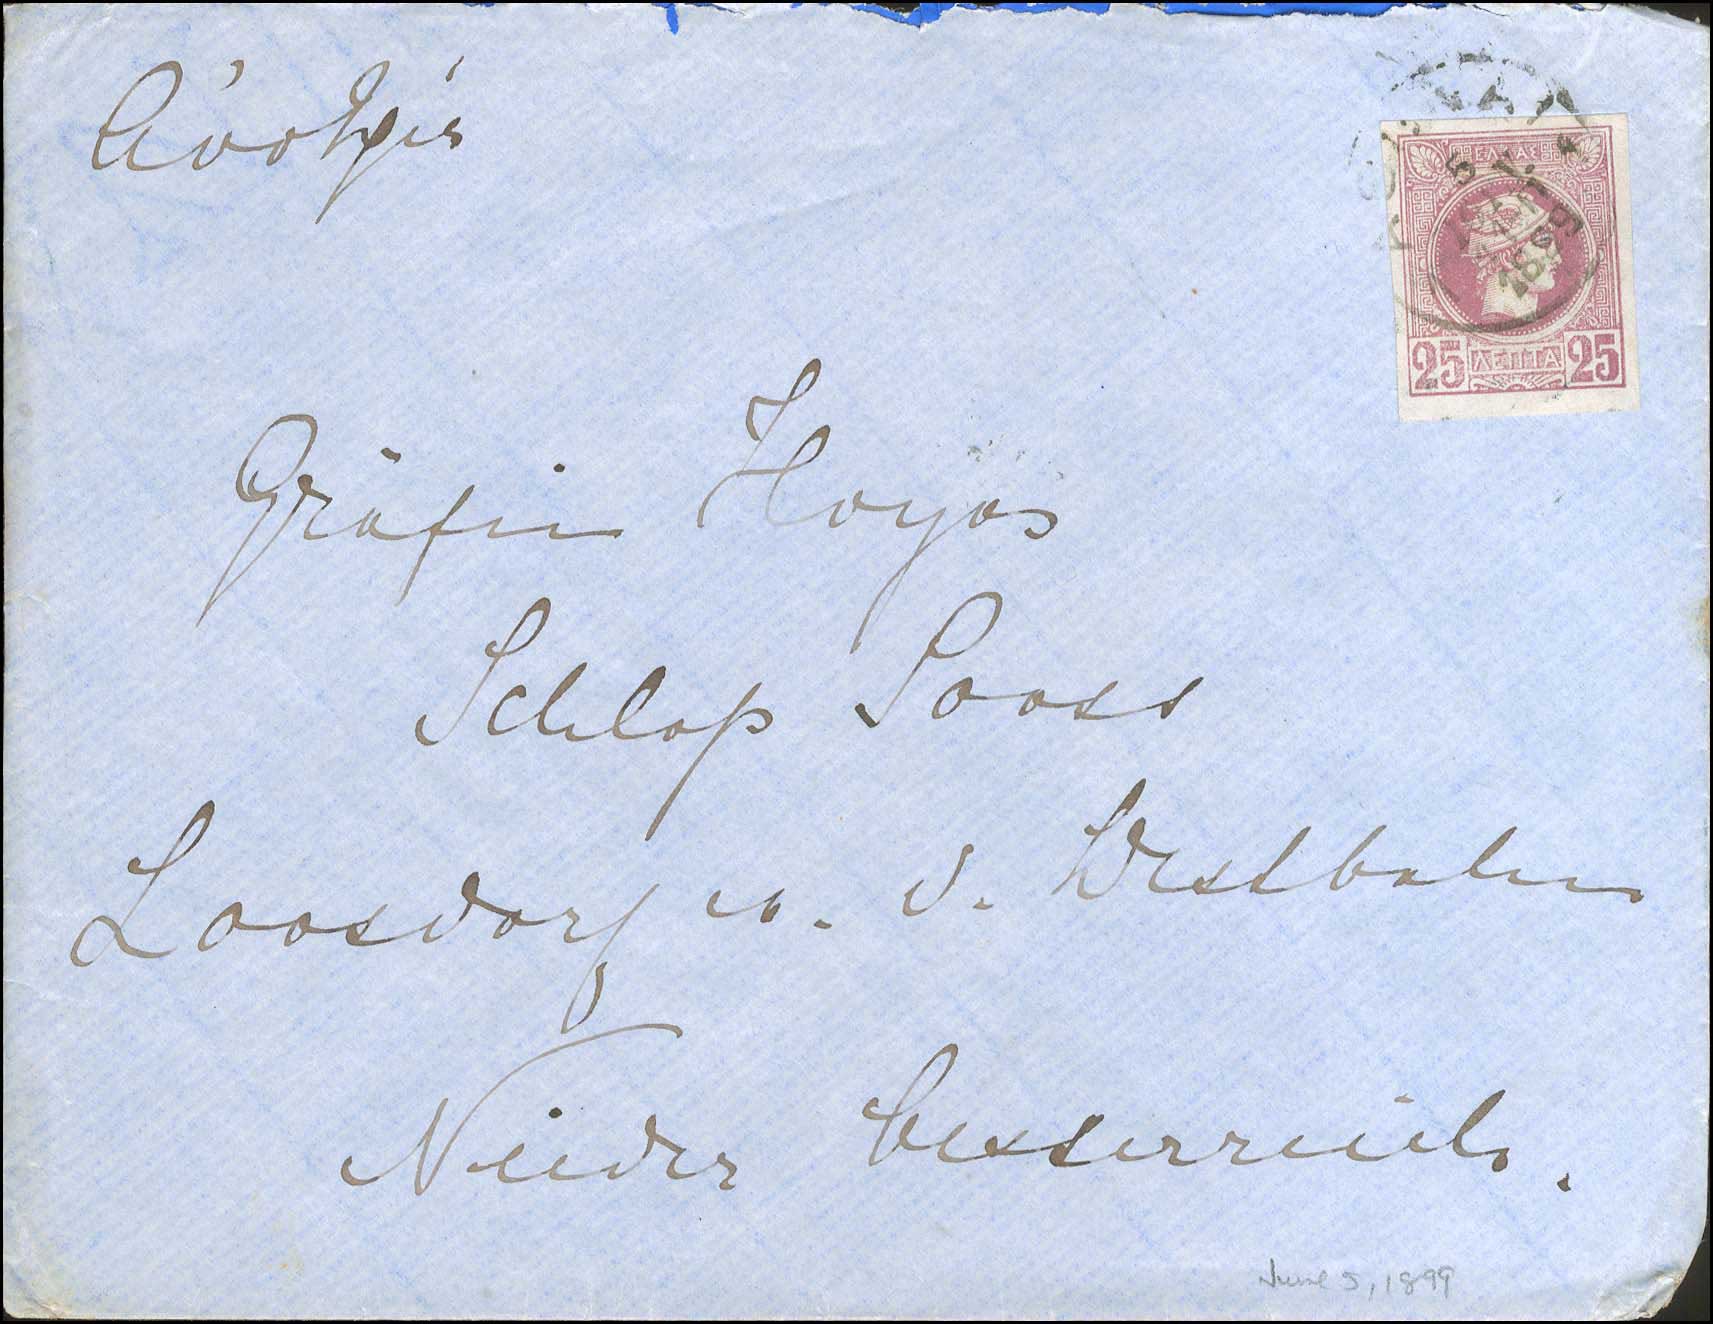 Αὐστρία
ΕΛΛΑΣ
5
1899
25 ΛΕΠΤΑ 25
Gräfin Hoyos
Schloß Sooss
Loosdorf a. d. Westbahn
Nieder Oesterreich.
June 5, 1899